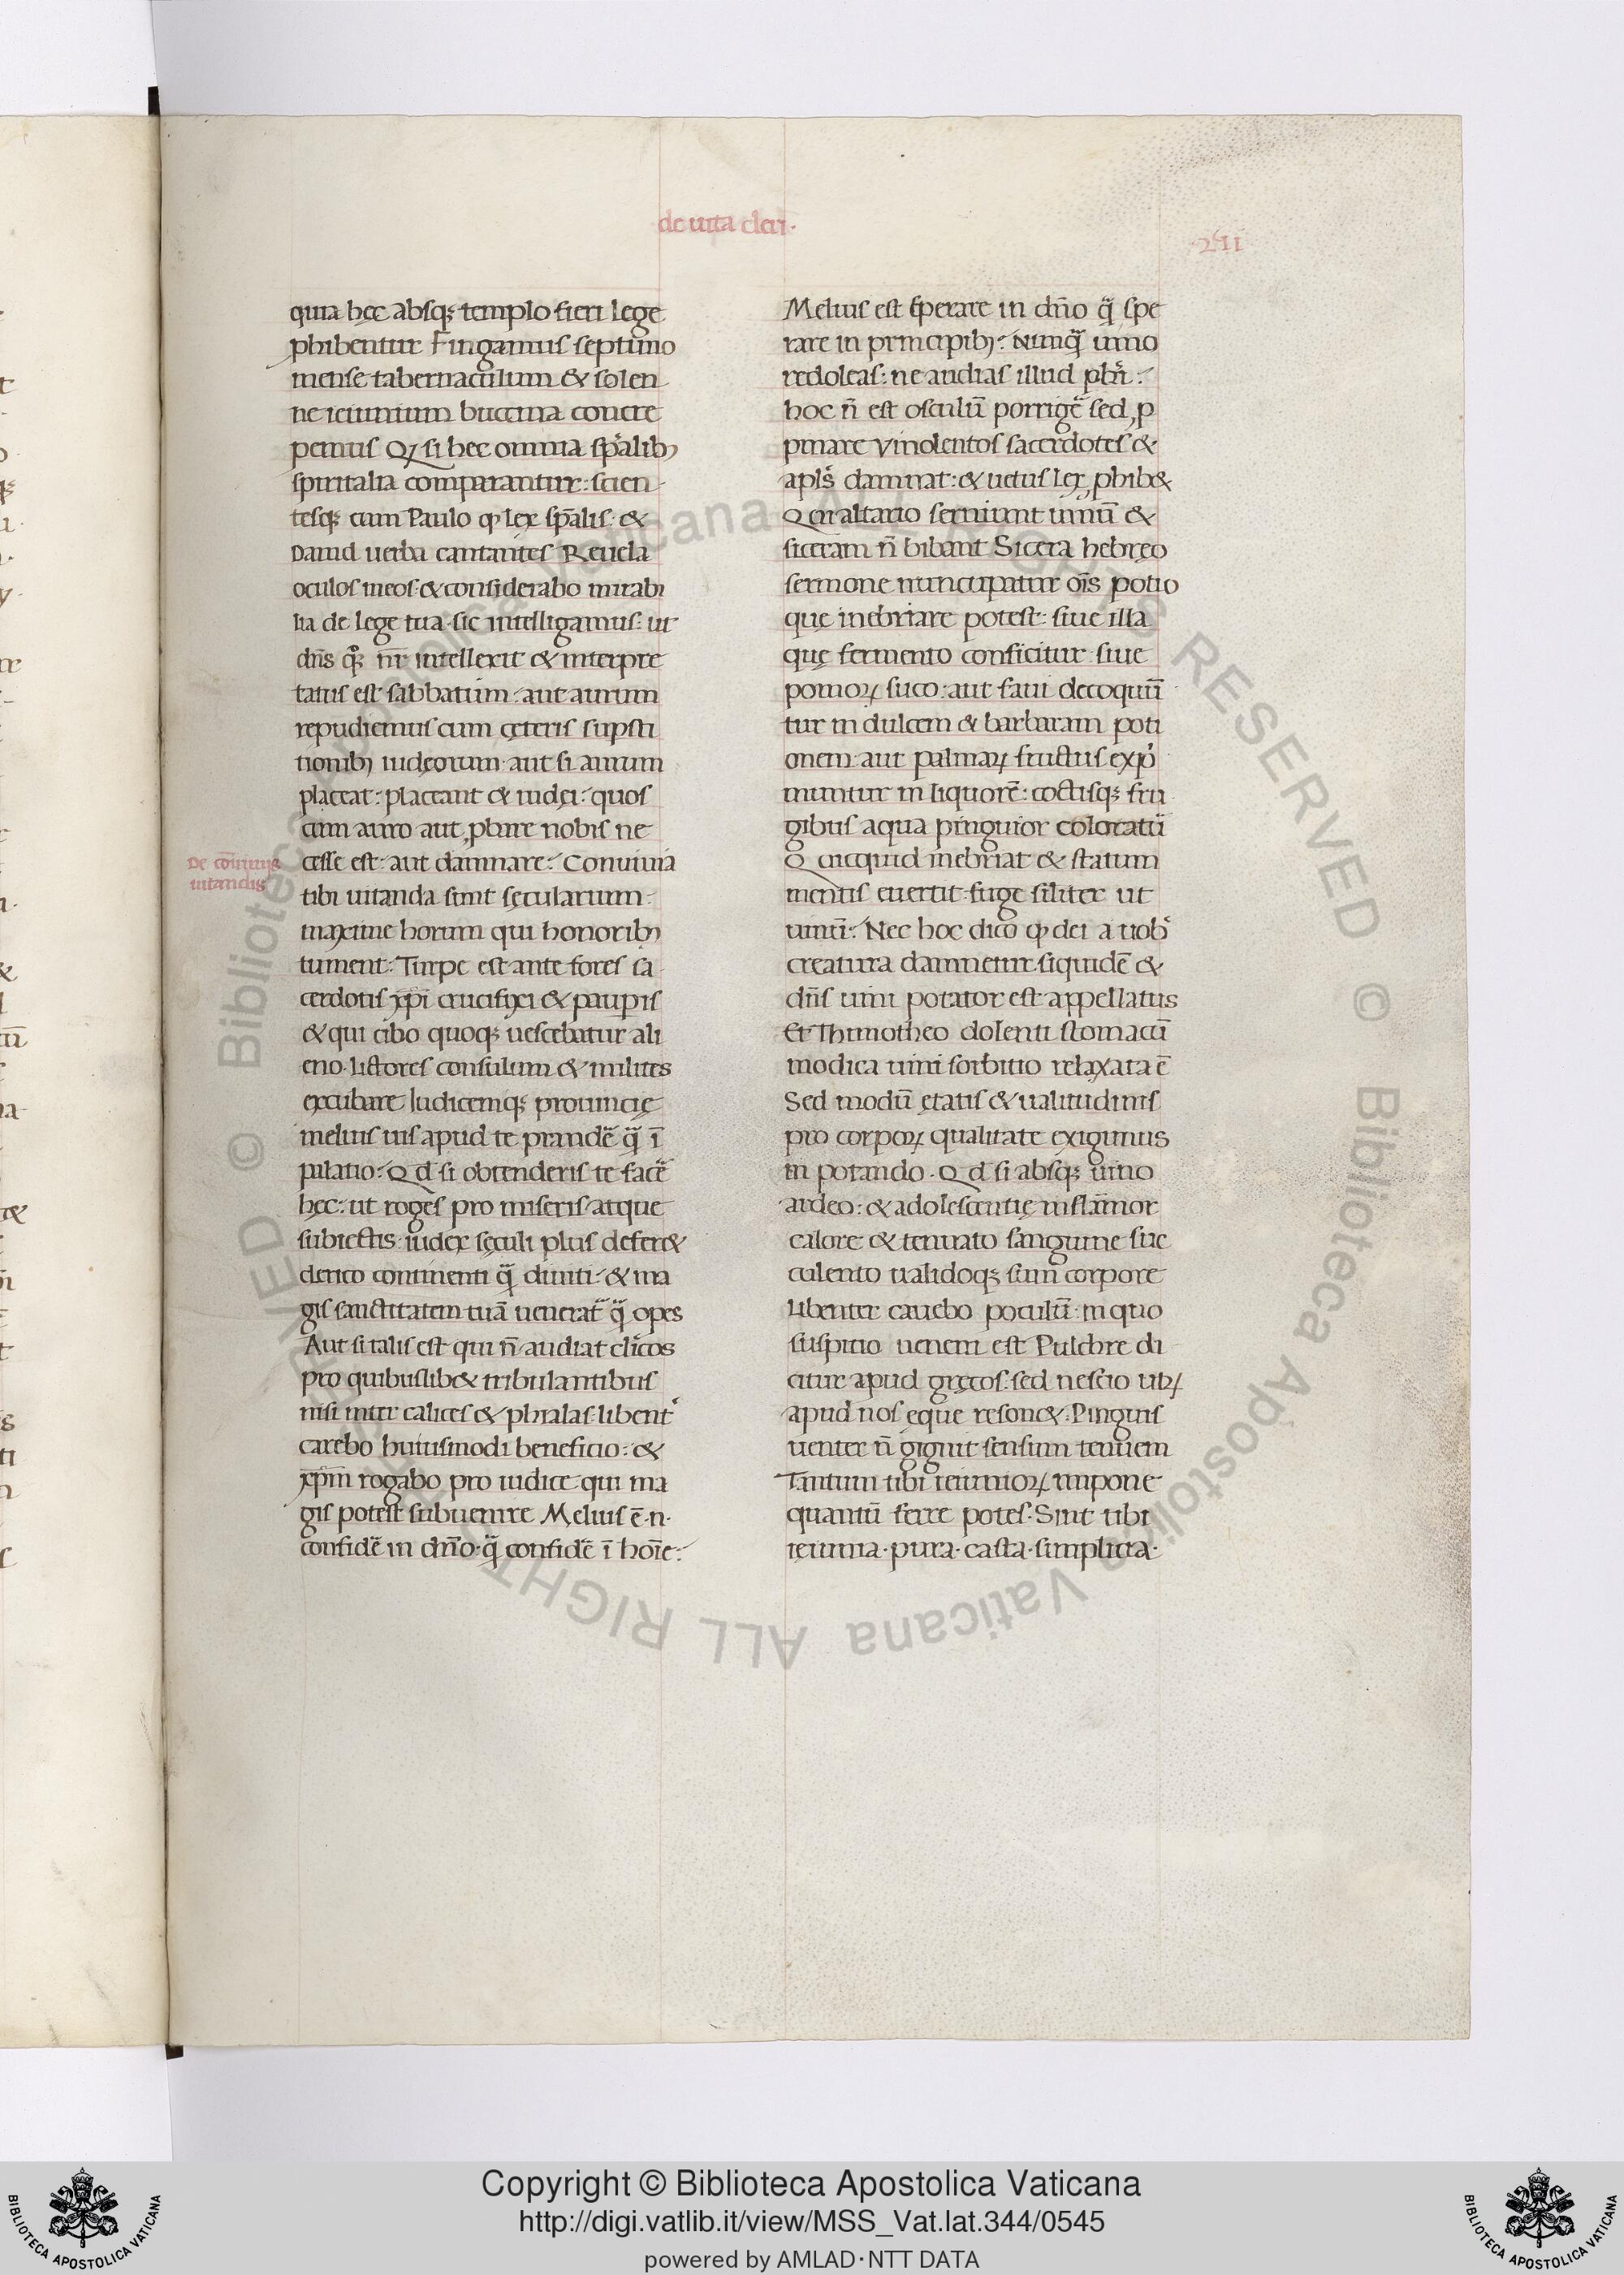 de uita cleri·
·2411
quia hęc absq; templo fieri lege
phibentur Fingamus septimo
mense tabernaculum & solen
ne ieiunium buccina concre
pemus Qd si hec omnia sp̄alib;
spiritalia comparantur: scien-
tesq; cum Paulo qꝫ lex sp̄alis· &
Dauid uerba cantantes Reuela
oculos meos· & considerabo mirabi
lia de lege tua· sic intelligamus: ut
dn̄s q°q; nr̄ intellexit & interpre
tatus est sabbatum: aut aurum
repudiemus cum çeteris supsti
tionib; iudęorum· aut si aurum
placeat: placeant & iudęi: quos
cum auro aut ꝓbare nobis ne
De co̅uiuiis
uitandis
cesse est: aut damnare: Conuiuia
tibi uitanda sunt sęcularium·
maxime horum qui honorib;
tument: Turpe est ante fores sa
cerdotis xp̄i crucifixi & paupis
& qui cibo quoq; uescebatur ali
eno· lictores consulum & milites
excubare Iudicemq; prouincię
melius uis apud te prandē̄ q̄ ī
palatio: Qd si obtenderis te facē̄
hęc: ut roges pro miseris atque
subiectis· iudex sęculi plus defer&
clerico continenti q̄ diuiti: & ma
gis sanctitatem tuā uenerat̄ q̄ opes
Aut si talis est qui n̄ audiat cl̄icos
pro quibuslib& tribulantibus
nisi inter calices & phialas· libent'
carebo huiusmodi beneficio: &
xp̄m rogabo pro iudice· qui ma
gis potest subuenire Melius ē·n·
confidē̄ in dn̄o· q̄ confidē̄ ī hoīe:
Melius est sperare in dn̄o q̄ spe
rare in principib;: Nunq̄ uino
redoleas: ne audias illud phi̅:
hoc n̄ est osculū porrigē̄ sed ꝓ
pinare Vinolentos sacerdotes &
apl̄s damnat: & uetus lex ꝓhib&
Qui altario seruiunt uinū &
siceram n̄ bibant Sicera hebręo
sermone nuncupatur oīs potio
quę inebriare potest: siue illa
quę fermento conficitur siue
pomoꝝ suco: aut faui decoquū
tur in dulcem & barbaram poti
onem· aut palmaꝝ fructus expi
muntur in liquorē: coctisq; fru
gibus aqua pinguior coloratur̄
Quicquid inebriat & statum
mentis euertit· fuge siliter ut
uinū: Nec hoc dico qꝫ dei a nob'
creatura damnetur· siquidē &
dn̄s uini potator est appellatus
Et Thimotheo dolenti stomacū
modica uini sorbitio relaxata ē
Sed modū ętatis & ualitudinis
pro corpoꝝ qualitate exigimus
in potando· Qd si absq; uino
ardeo: & adolescentię inflāmor
calore & tenuato sanguine suc
culento ualidoq; sum corpore
libenter cauebo poculū· in quo
suspitio ueneni est Pulchre di
citur apud gręcos: sed nescio utꝝ
apud nos ęque reson&: Pinguis
uenter n̄ gignit sensum tenuem
Tantum tibi ieiunioꝝ impone
quantū ferre potes· Sint tibi
ieiunia· pura· casta· simplicia·
© Biblioteca Apostolica Vaticana ALL RIGHTS RESERVED © Biblioteca Apostolica Vaticana ALL RIGHTS RESERVED
Copyright © Biblioteca Apostolica Vaticana
http://digi.vatlib.it/view/MSS_Vat.lat.344/0545
powered by AMLAD·NTT DATA
BIBLIOTECA APOSTOLICA VATICANA
BIBLIOTECA APOSTOLICA VATICANA